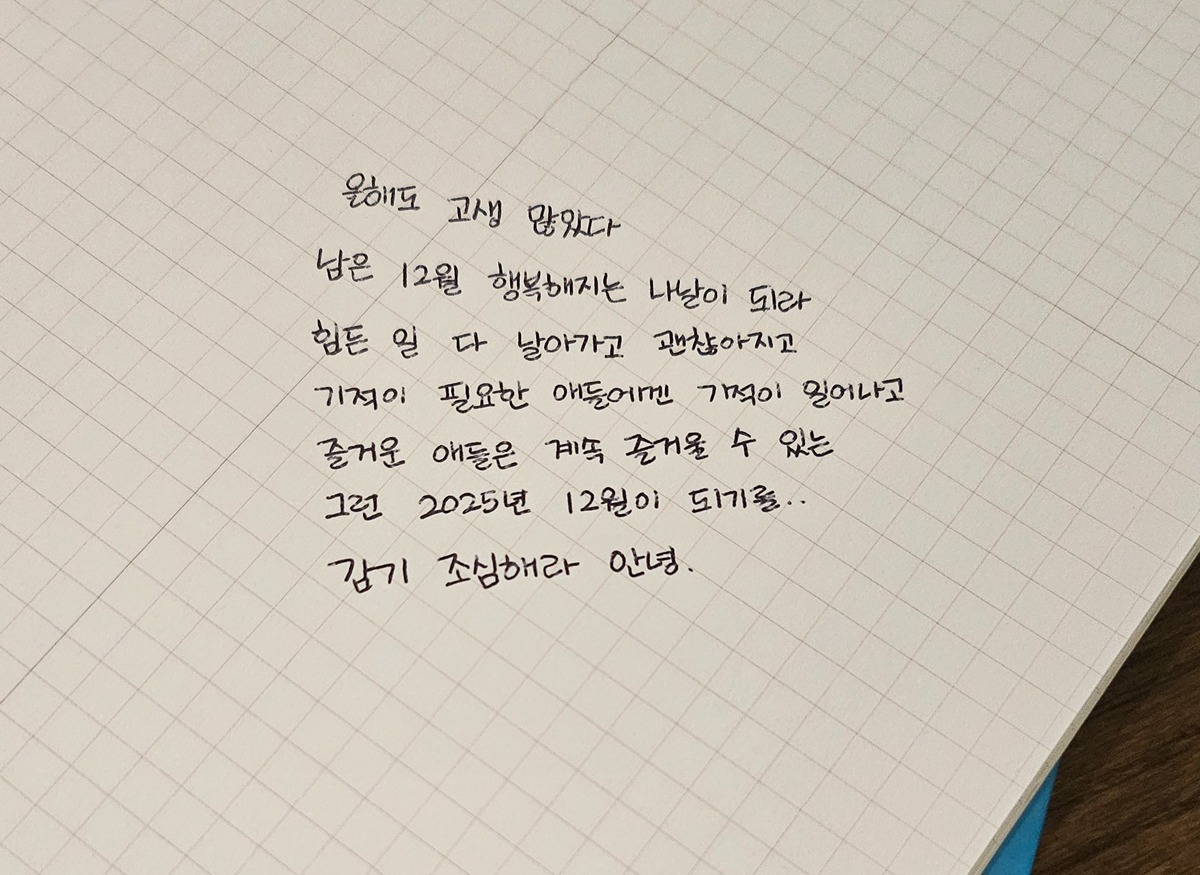 올해도 고생 많았다
남은 12월 행복해지는 나날이 되라
힘든 일 다 날아가고 괜찮아지고
기적이 필요한 애들에겐 기적이 일어나고
즐거운 애들은 계속 즐거울 수 있는
그런 2025년 12월이 되기를..
감기 조심해라 안녕.